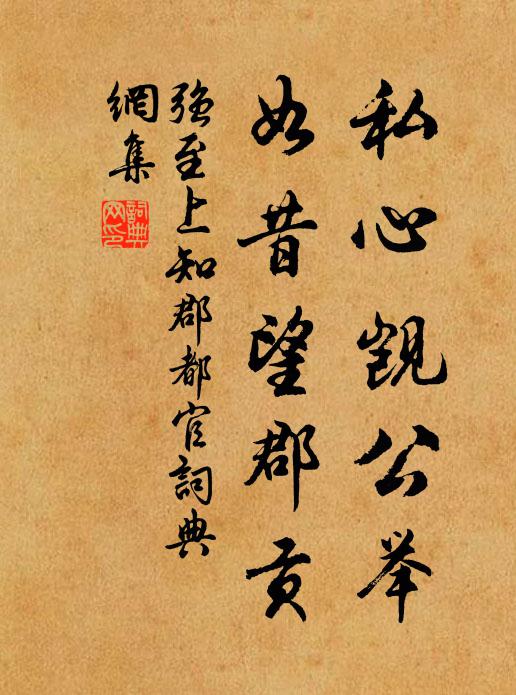 私心觊公举
如昔望郡贡
强至上知郡都官詞典
網集
詞典
网印